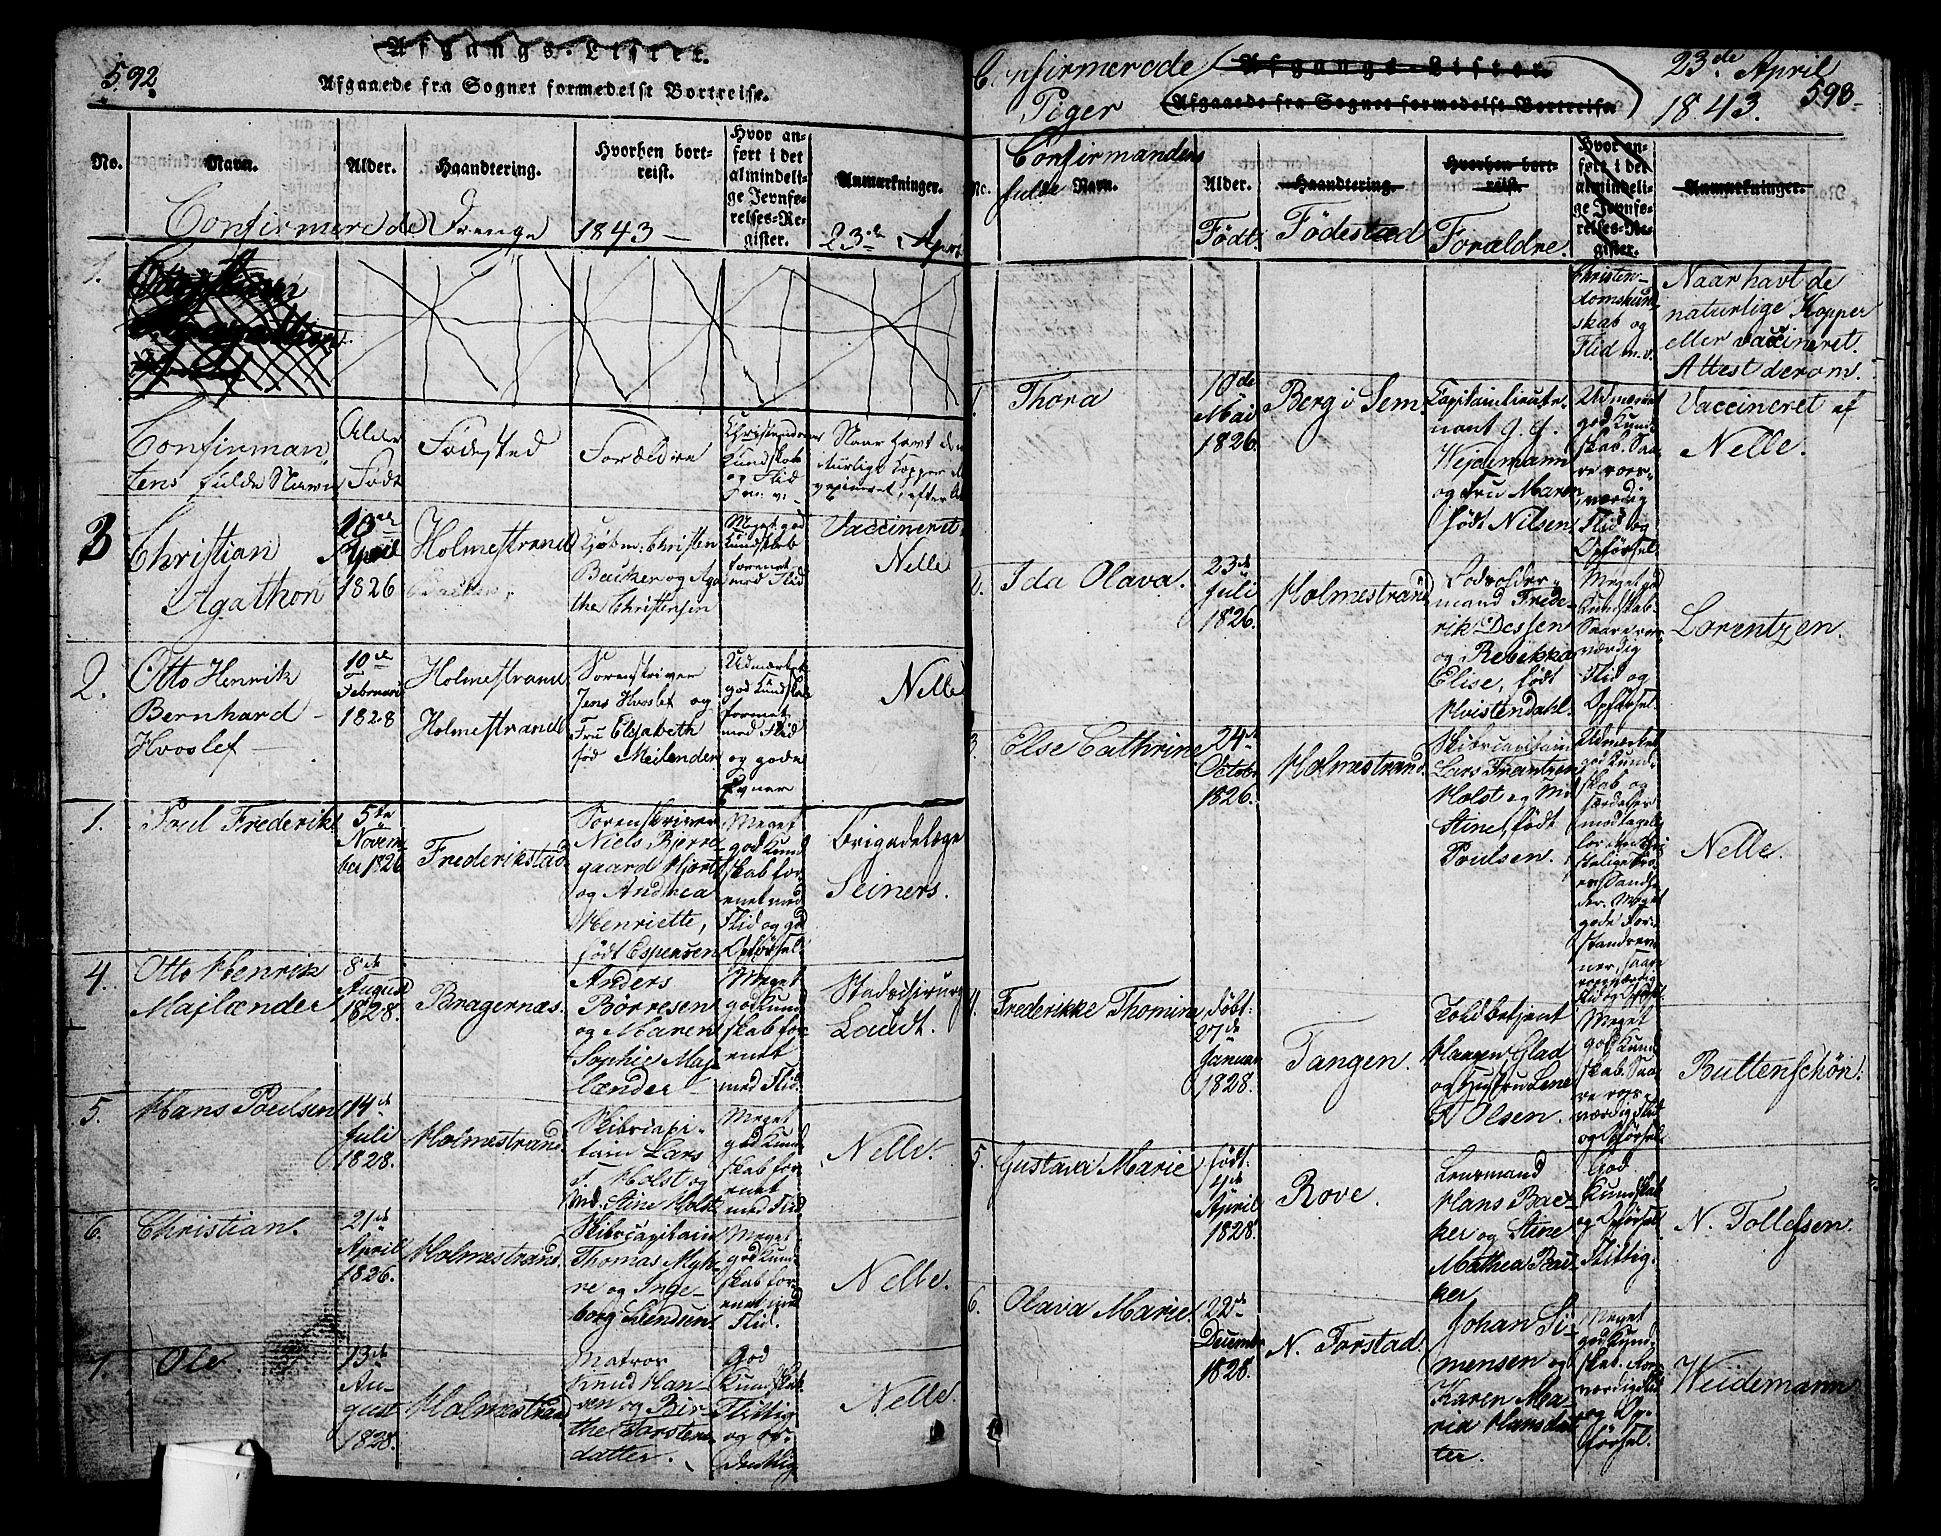 592.
Afgangs-Lister.
Afgaaede fra Sognet formedelst Bortreise.
No.
Navn.
Alder.
Haandtering.
Hvorhen bort-
reist.
Hvor an-
ført i det
almindeli-
ge Jevnfø-
relses-Re-
gister.
Anmærkninger.
Confirmerede Drenge 1843 – 23de April
1.
Confirman
tens fulde Navn
Alder
Født
Fødested
Forældre
Kundskab
og Flid
m: v:
Naar havt de
3
Christian
Agathon
April
1826
Holmestrand
Kjøbm: Christen
Backer og Aga
the Christensen
Meget god
Kundskab
forenet
med Flid
Vaccineret
Nelle
2.
Otto Henrik
Bernhard –
Hvoslef –
10de
Februari
1828
Holmestrand
Holmestrand
Sorenskriver
Jens Hvoslef og
Fru Elisabeth
fød Meilender
Udmærket
god Kundskab
forenet
med Flid
og gode
Evner
Nelle
1.
Poul Frederik
5te
Novem
ber 1826
Frederikstad
Sorenskriver
Niels Bjerre
gaard Hjort
og Andrea
Henriette,
født Espensen
Meget
god Kund
skab for
enet med
Flid og god
Opførsel.
Brigadelæge
Seiners.
4.
Otto Henrik
Majlænder
8de
August
1828.
Bragernæs.
Anders
Børresen
og Maren
Sophie Maj
lænder
Meget
god Kund
skab for
enet
med Flid.
Stadschirurg
Laudt.
5.
Hans Poulsen
14de
Juli
1828.
Holmestrand.
Skibscapi-
tain Lars
F. Holst og
Md. Stine Holst
Meget
god Kund
skab for
enet
med Flid
Nelle.
6.
Christian.
21de
April
1826.
Holmestrand.
Skibscapitain
Thomas Myh-
re og Inge-
borg
Meget
god Kund-
skab for-
enet med
Flid.
Nelle.
7.
Ole.
13de
Au-
gust
1828.
Holmestrand
Matros
Knud Han-
sen og Bir-
the Torstens
datter.
God
Kundskab
Flittig
og or-
dentlig
Nelle.
Confirmerede
Piger
Afgangs-Lister
Afgaaede fra Sognet formedelst Bortreise
23de April
1843.
593.
No.
Confirmandens
fulde
Navn.
Alder.
Født.
Haandtering.
Fødestæd
Hvorhen bort-
reist.
Forældre.
Hvor an-
ført i det
almindeli-
ge Jevnfø-
relses-Re-
gister.
Anmærkninger.
Christen-
domskund-
skab og
Flid m. v.
Naar havt de
naturlige Kopper
eller vaccineret.
Attest derom.
1
Thora
10de
Mai
1826.
Berg i Sem
Capitainlieute-
nant J. J.
Wejdemann
og Fru Maren
født Nilsen
Udmærket
god Kund
skab. Saa-
re roes-
værdig
Flid og
Opførsel.
Vaccineret af
Nelle.
2.
Ida Olava.
23de
Juli
1826.
Holmestrand
mand Frede-
rik Dessen
og Rebekka
Elise, født
Hvistendahl.
Meget god
Kundskab.
Saare roes-
værdig
Flid og
Opførsel.
Lorentzen.
3.
Else Cathrine
24de
Octobr
1826.
Holmestrand.
Skibscapitain
Lars Frantzen
Holst og Md
Stine, født
Poulsen.
Udmærket
god Kund-
skab og
Nelle.
4.
Frederikke Thomine
døbt:
27de
Januar
1828.
Tangen.
Toldbetjent
Haagen Glad
og Hustru Lene
Olsen.
Meget
god Kund
skab. Saa-
re roes-
værdig Flid
og Opførsel.
Buttenschön.
5.
Gustava Marie
født:
April
1828.
Rove.
Lensmand
Hans Bac-
ker og Stine
Mathea Bac-
ker.
God
Kundskab
og Opførsel.
Flittig.
N. Tollefsen.
6.
Olava Marie.
22de
Decemr
1828.
N. Torstad.
Johan Si-
mensen og
Karen Ma-
ria Hansdat-
ter.
Meget
god Kund-
skab.
og Op-
førsel.
Weidemann